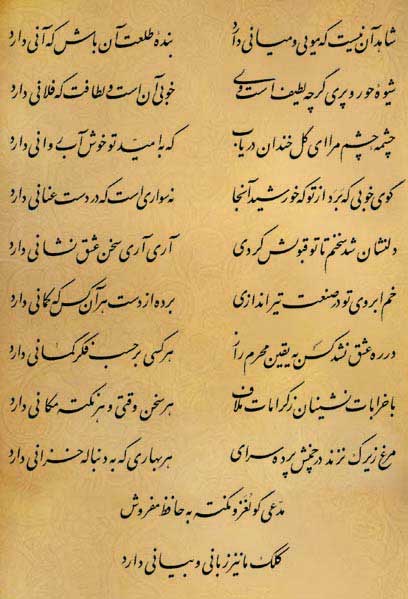 شاهد آن نیست که مویی و میانی دارد بندهٔ طلعت آن باش که آنی دارد
شیوهٔ حور و پری گرچه لطیف است ولی خوبی آن است و لطافت که فلانی دارد
چشمهٔ چشم مرا ای گل خندان دریاب که به امید تو خوش آب روانی دارد
گوی خوبی که برد از تو که خورشید آنجا نه سواری است که در دست عنانی دارد
دلنشان شد سخنم تا تو قبولش کردی آری آری سخن عشق نشانی دارد
خم ابروی تو در صنعت تیراندازی برده از دست هر آن کس که کمانی دارد
در ره عشق نشد کس به یقین محرم راز هر کسی بر حسب فکر گمانی دارد
با خرابات نشینان ز کرامات ملاف هر سخن وقتی و هر نکته مکانی دارد
مرغ زیرک نزند در چمنش پرده سرای هر بهاری که به دنباله خزانی دارد
مدعی گو لغز و نکته به حافظ مفروش
کلک ما نیز زبانی و بیانی دارد